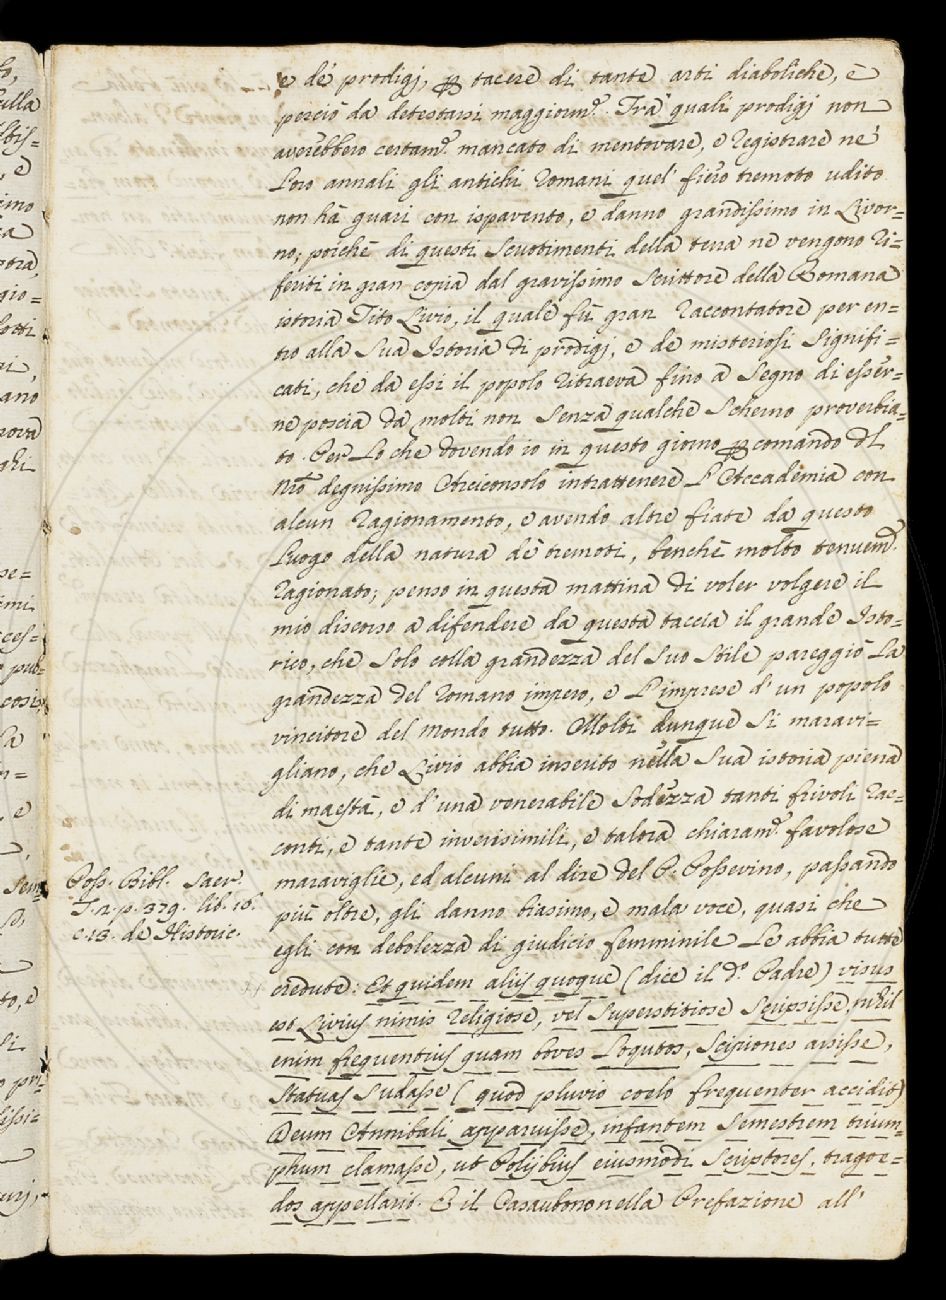 e de' prodigj, ꝑ tacere di tante arti diaboliche, è
perciò da detestarsi maggiorm.ᵉ Tra' quali prodigj non
averebbero certam.ᵉ mancato di mentovare, e registrare ne'
Loro annali gli antichi Romani quel' fiero tremoto udito
non hà guari con ispavento, e danno grandissimo in Livor=
no; poiche di questi scuotimenti della terra ne vengono ri=
feriti in gran copia dal gravissimo scrittore della Romana
istoria Tito Livio, il quale fù gran raccontatore per en=
tro alla sua Istoria di prodigj, e de misteriosi signifi=
cati, che da essi il popolo ritraeva fino a segno di esser=
ne poscia da molti non senza qualche scherno proverbia=
to. Per Lo che dovendo io in questo giorno ꝑ comando del
Nrō degnissimo Arciconsolo intrattenere L'Accademia con
alcun ragionamento, e avendo altre fiate da questo
Luogo della natura de' tremoti, benche molto tenuem.ᵉ
ragionato; penso in questa mattina di voler volgere il
mio discorso a difendere da questa taccia il grande Isto=
rico, che solo colla grandezza del suo stile pareggiò La
grandezza del Romano impero, e L'imprese d'un popolo
vincitore del mondo tutto. Molti dunque si maravi=
gliano, che Livio abbia inserito nella sua istoria piena
di maestà, e d'una venerabile sodezza tanti frivoli rac=
conti, e tante inverisimili, e talora chiaram.ᵉ favolose
maraviglie, ed alcuni al dire del P. Possevino, passando
più oltre, gli danno biasimo, e mala voce, quasi che
egli con debolezza di giudicio femminile Le abbia tutte
credute: Et quidem alijs quoque (dice il d.º Padre) visus
est Livius nimis religiose, vel superstitiose scripsisse; nihil
enim frequentius quam boves Loqutos, Scipiones arsisse,
statuas sudasse (quod pluvio coelo frequenter accidit)
Deum Annibali apparuisse, infantem semestrem trium=
phum clamasse, ut Polijbius eiusmodi scriptores, tragoe=
dos appellarit. E il Casaubono nella Prefazione all'
Poss. Bibl. Sacr.
T. 2. p. 379. lib. 16.
c. 13. de Historic.